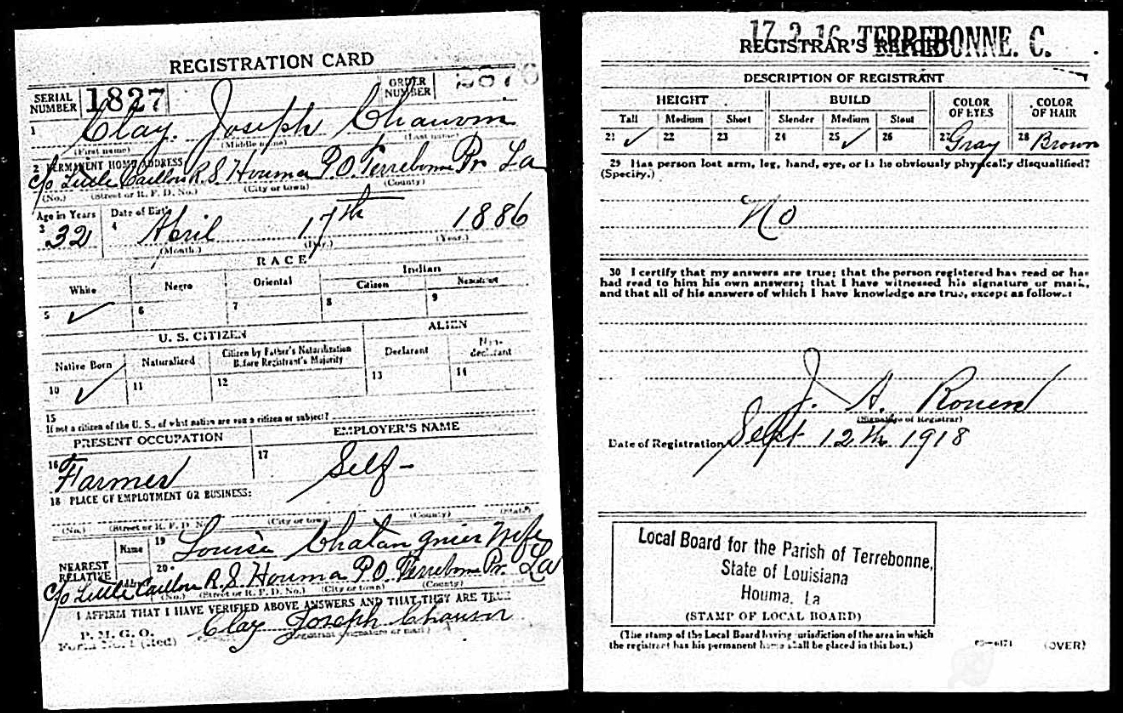 REGISTRATION CARD
SERIAL NUMBER 1827 ORDER NUMBER
1 Clay Joseph Chauvin
(First name) (Middle name) (Last name)
2 PERMANENT HOME ADDRESS
c/o Little Caillou R.S. Houma P.O. Terrebonne Pr. La
(No.) (Street or R. F. D. No.) (City or town) (County)
Age in Years Date of Birth
3 32 4 April 17th 1886
(Month.) (Day.) (Year.)
RACE
White Negro Oriental Indian
Citizen Noncitizen
5 ✓ 6 7 8 9
U. S. CITIZEN ALIEN
Native Born Naturalized Citizen by Father's Naturalization Before Registrant's Majority Declarant Non-declarant
10 ✓ 11 12 13 14
15
If not a citizen of the U. S., of what nation are you a citizen or subject?
PRESENT OCCUPATION EMPLOYER'S NAME
16 Farmer 17 Self -
18 PLACE OF EMPLOYMENT OR BUSINESS:
(No.) (Street or R. F. D. No.) (City or town) (County) (State)
NEAREST RELATIVE Name 19 Louise Chatangnier Wife
20
c/o Little Caillou R.S. Houma P.O. Terrebonne Pr. La
(No.) (Street or R. F. D. No.) (City or town) (County)
I AFFIRM THAT I HAVE VERIFIED ABOVE ANSWERS AND THAT THEY ARE TRUE
P. M. G. O.
Form No. 1 (Red) Clay Joseph Chauvin
(Registrant's signature or mark)
17 2 16 TERREBONNE. C.
REGISTRAR'S REPORT
DESCRIPTION OF REGISTRANT
HEIGHT BUILD COLOR OF EYES COLOR OF HAIR
Tall Medium Short Slender Medium Stout
21 ✓ 22 23 24 25 ✓ 26 27 Gray 28 Brown
29 Has person lost arm, leg, hand, eye, or is he obviously physically disqualified?
(Specify.)
No
30 I certify that my answers are true; that the person registered has read or has
had read to him his own answers; that I have witnessed his signature or mark,
and that all of his answers of which I have knowledge are true, except as follows:
J. A.
(Signature of Registrar)
Date of Registration Sept 12th 1918
Local Board for the Parish of Terrebonne,
State of Louisiana
Houma, La
(STAMP OF LOCAL BOARD)
(The stamp of the Local Board having jurisdiction of the area in which
the registrant has his permanent home shall be placed in this box.)
(OVER)